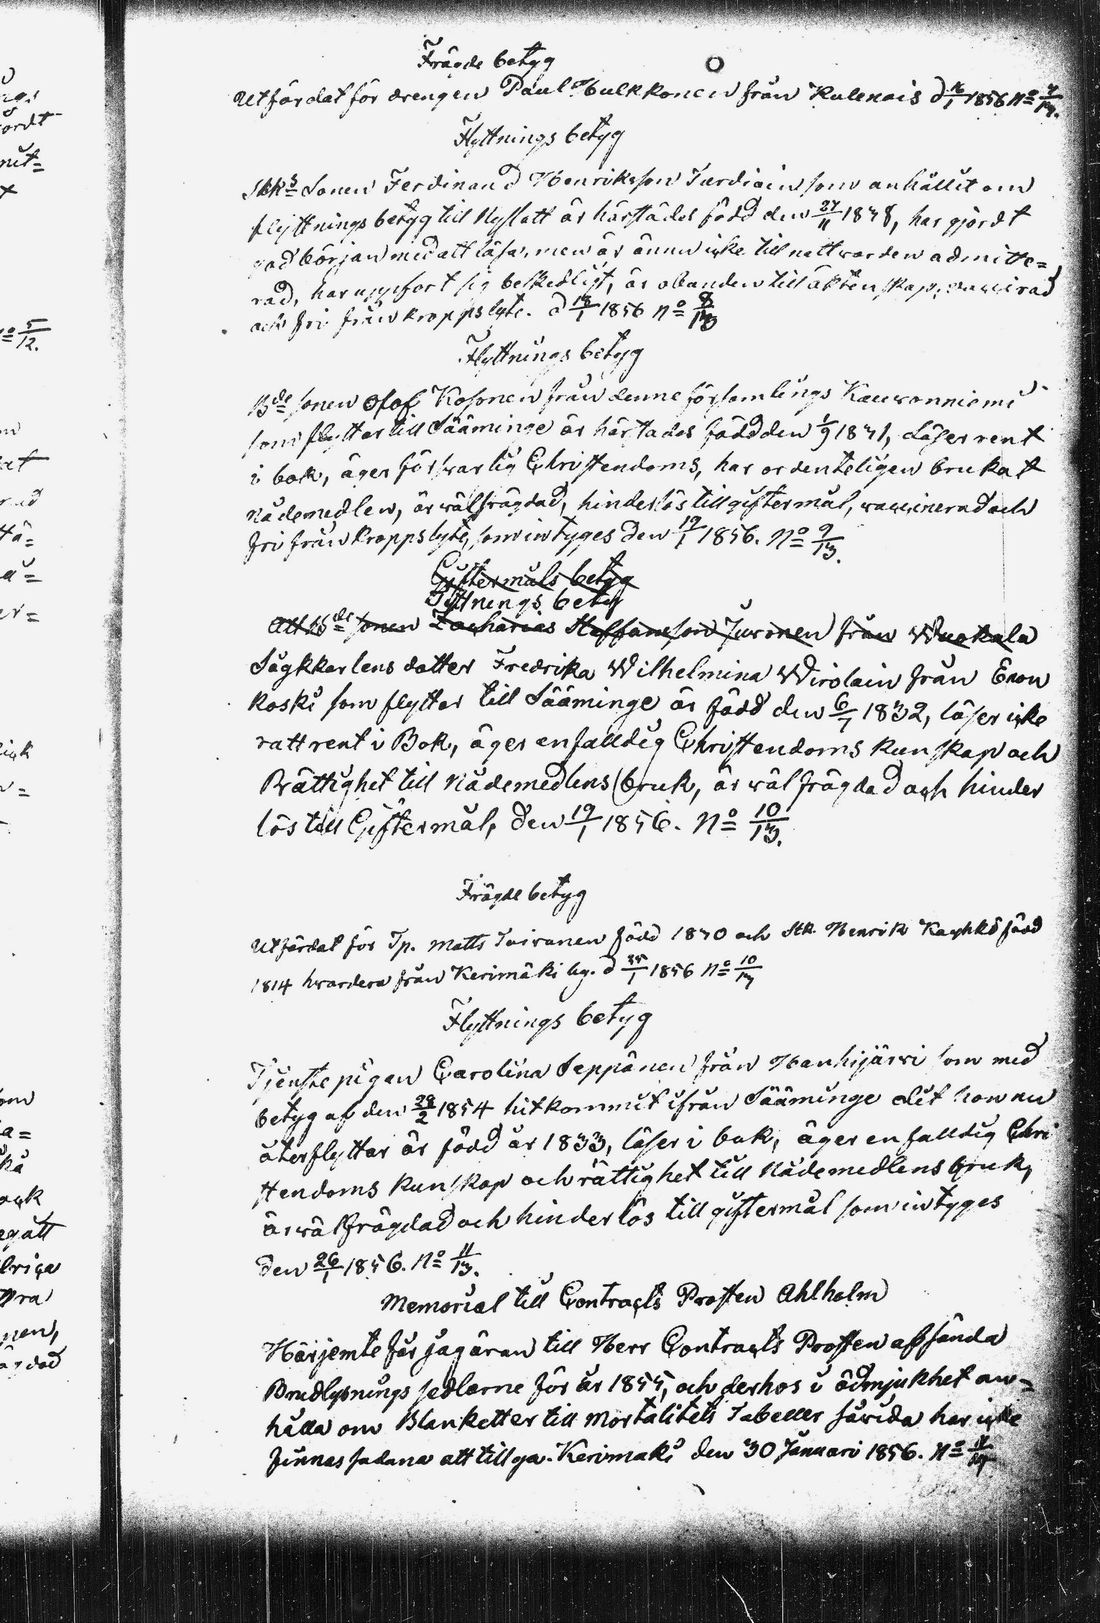 Frägde betyg
Utfärdat för drengen Paul Hulkkonen från Kulennois d 16/1 1856 No 7/13.
Flyttnings betyg
Skks Sonen Ferdinand Henriksson Turdiain som anhållit om
flyttnings betyg till Nyslott är härstädes född den 27/11 1838, har gjordt
god början med att läsa, men är ännu icke till nattvarden admitte=
rad, har uppfört sig beskedligt, är obunden till äktenskap, vaccinerad
och fri från kroppslyte. d 18/1 1856 No 8/13
Flyttnings betyg
Bde sonen Olof Kosonen från denne församlings Kauvonniemi
som flyttar till Sääminge är härstädes född den 1/9 1831, Läser rent
i bok, äger försvarlig Christendoms, har ordenteligen brukat
nådemedlen, är välfrägdad, hinderlös till giftermål, vaccinerad och
fri från kroppslyte, som intyges den 19/1 1856. No 9/13.
Giftermåls betyg
Flyttnings betyg
Att Bde sonen Zacharias Staffansson Juvonen från Wuokala
Sågkkarlens dotter Fredrika Wilhelmina Wirolain från Enon
koski som flyttar till Sääminge är född den 6/1 1832, läser icke
rätt rent i Bok, äger enfalldig Christendoms kunskap och
Rättighet till Nådemedlens bruk, är välfrägdad och hinder
lös till Giftermål, den 19/1 1856. No 10/13.
Frägde betyg
Utfärdat för Tp. Matts Toivanen född 1830 och Stk Henrik född
1814 hvardera från Kerimäki by. d 25/1 1856 No 10/13
Flyttnings betyg
Tjenste pigan Carolina Seppänen från Hanhijärvi som med
betyg af den 28/2 1854 hitkommit ifrån Sääminge dit hon nu
återflyttar är född år 1833, läser i bok, äger enfalldig Chri
stendoms kunskap och rättighet till Nådemedlens bruk,
är välfrägdad och hinderlös till giftermål som intyges
den 26/1 1856. No 11/13.
Memorial till Contracts Prosten Ahlholm
Härjemte får jag äran till Herr Contracts Prosten afsända
Brudlysnings sedlarne för år 1855, och derhos i ödmjukhet an=
hålla om Blanketter till Mortalitets Tabeller såvida här icke
finnas sådana att tillgå. Kerimäki den 30 Januari 1856. No 11/13